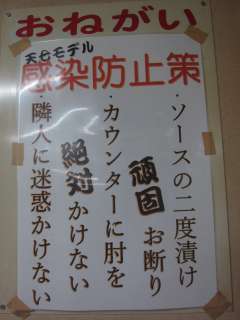 おねがい
天七モデル
感染防止策
・ソースの二度漬け
頑固お断り
・カウンターに肘を
絶対かけない
・隣人に迷惑かけない